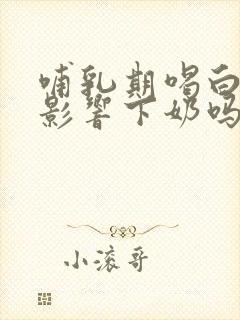 哺乳期喝白
影响下奶吗
小滚哥